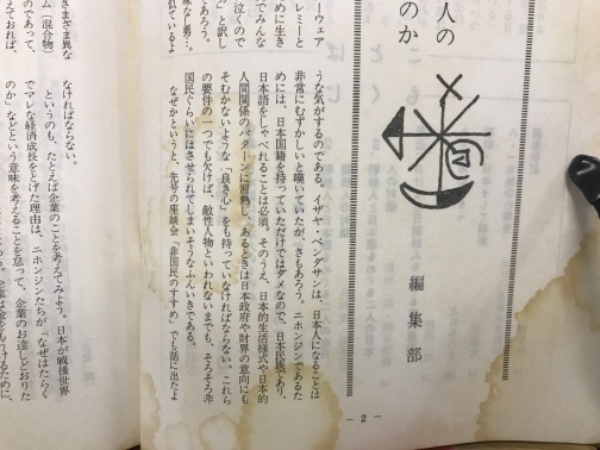 人の
のか
編集部
うな気がするのである。イザヤ・ベンダサンは、日本人になることは
非常にむずかしいと嘆いていたが、さもあろう。ニホンジンであるた
めには、日本国籍を持っていただけではダメなので、日本民族であり、
日本語をしゃべれることは必須。そのうえ、日本的生活様式や日本的
人間関係のパターンに習熟し、あるときは日本政府や財界の意向にも
そむかないような「良き心」をも持っていなければならない。これら
の要件の一つでも欠けば、敵性人物といわれないまでも、そろそろ非
国民ぐらいにはさせられてしまいそうなふんいきである。
なぜかというと、先号の座談会「非国民のすすめ」でも話に出たよ
- 2 -
ーウェア
レミーと
めに生き
でみんな
泣くので
」と訳し
であろう。
味な男…。
きまざま異な
ム（混合物）
のであって、
えておれば、
なければならない。
というのも、たとえば企業のことを考えてみよう。日本が戦後世界
でマレな経済成長をとげた理由は、ニホンジンたちが「なぜはたらく
のか」などという意味を考えることを怠って、企業のお達しどおりた